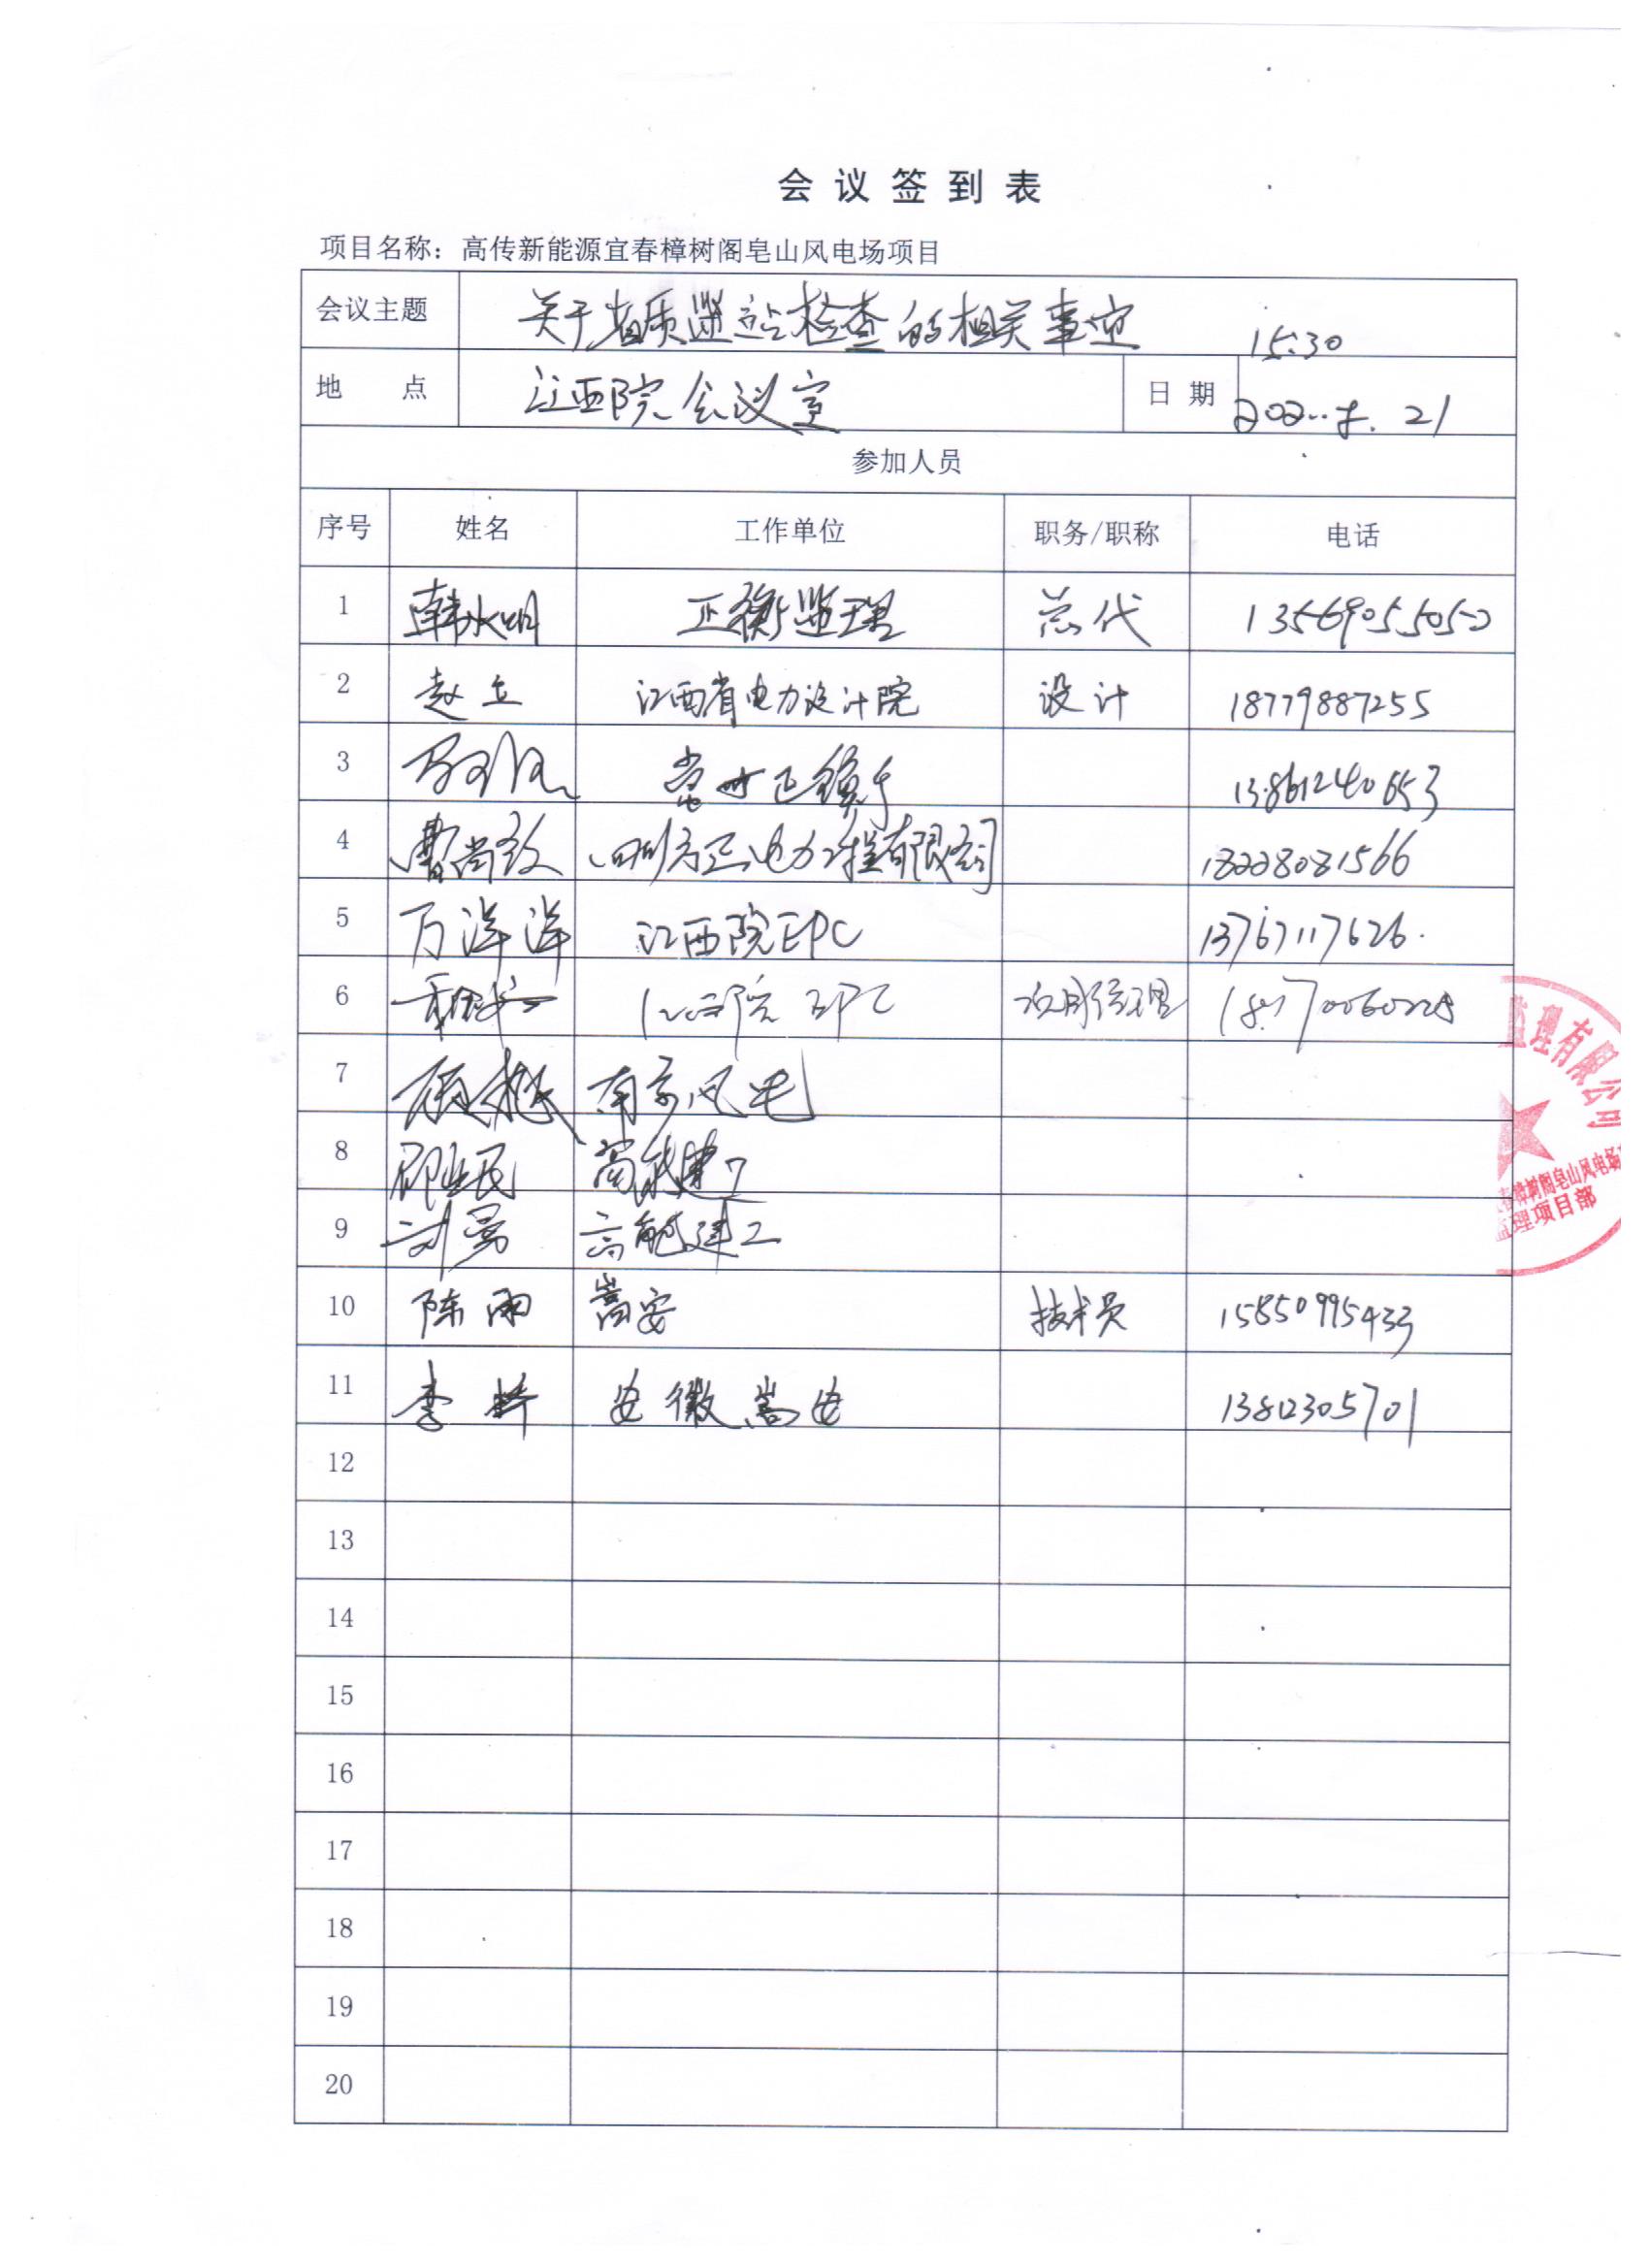 会议签到表
项目名称：高传新能源宜春樟树阁皂山风电场项目
会议主题 关于省质监站检查的相关事宜 15:30
地 点 江西院会议室 日 期 21
参加人员
序号 姓名 工作单位 职务/职称 电话
1 韩 正衡监理 总代 13569055050
2 赵立 江西省电力设计院 设计 18779887255
3 13861240653
4 曹尚 电力工程有限公司 18228081566
5 万洋洋 江西院EPC 13767117626.
6 江西院 EPC 项目经理
7 南京风电
8 邵业民 高能建工
9 刘勇 高能建工
10 陈雨 嵩安 技术员 15850995433
11 李桥 安徽嵩安 13812305701
12
13
14
15
16
17
18
19
20
监理有限公司
春樟树阁皂山风电场
监理项目部